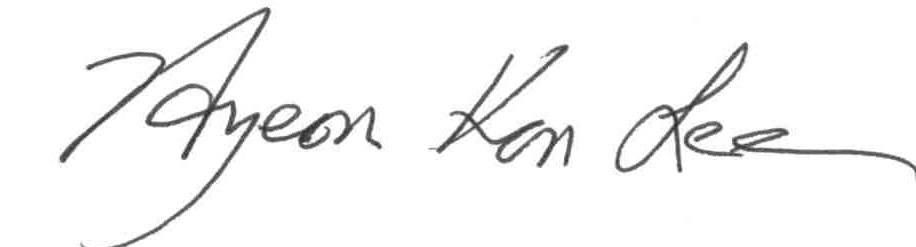 Hyeon Kon Lee